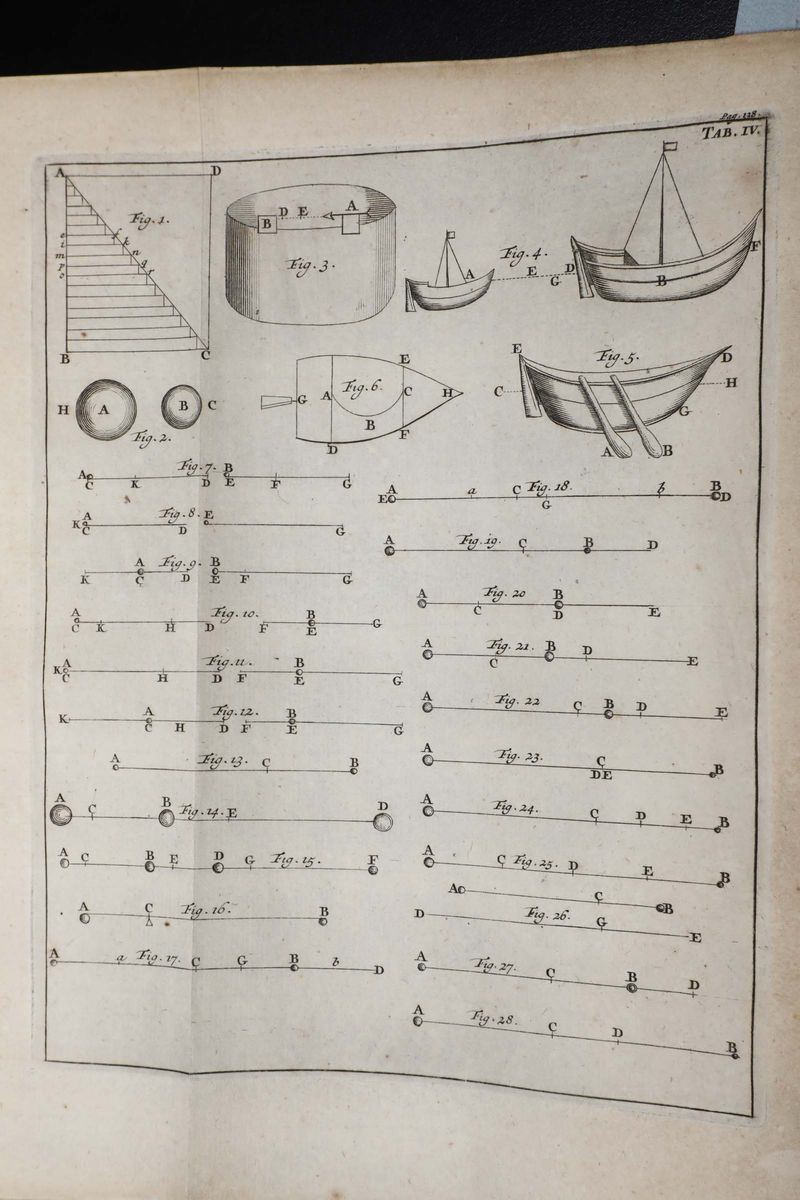 Pag. 128.
TAB. IV.
A D
Fig. 1.
e f
i k
m n
p q
o r
B C
D E A
B
Fig. 3.
Fig. 4.
A E D F
G B
H A B C
Fig. 2.
E
Fig. 6.
G A C H
B
F
D
E Fig. 5. D
C H
G
A B
Fig. 7. B
A
C K D E F G
A Fig. 8. E
K
C D G
A Fig. 9. B
K C D E F G
A Fig. 10. B
C K H D F E G
A Fig. 11. B
K
C H D F E G
A Fig. 12. B
K
C H D F E G
A Fig. 13. C B
A C B Fig. 14. E D
A C B E D G Fig. 15. F
A C Fig. 16. B
A a Fig. 17. C G B b D
A a C Fig. 18. b B
E D
G
A Fig. 19. C B D
A Fig. 20 B
C D E
A Fig. 21. B D
C E
A Fig. 22 C B D E
A Fig. 23. C B
DE
A Fig. 24. C D E B
A C Fig. 25. D E B
A C B
D Fig. 26. G E
A Fig. 27. C B D
A Fig. 28. C D B